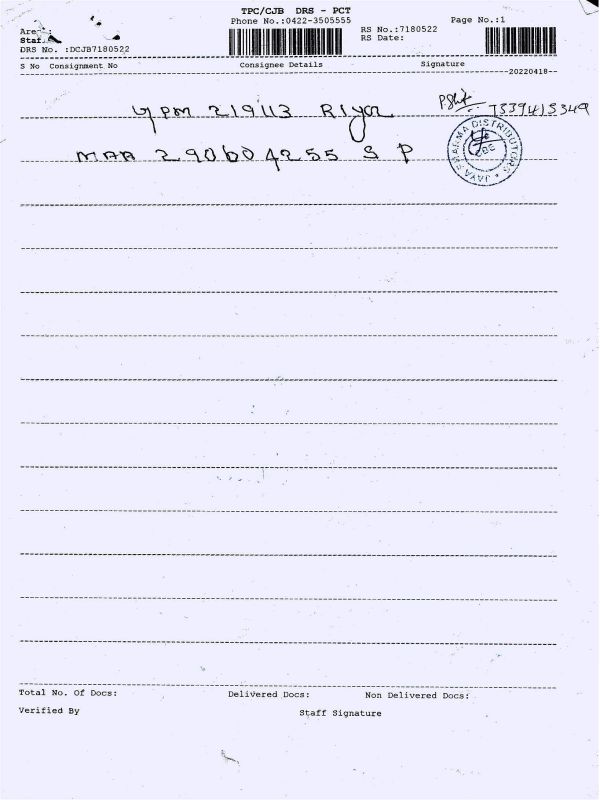 TPC/CJB DRS - PCT
Phone No.:0422-3505555
Page No.:1
RS No.:7180522
RS Date:
DRS No. :DCJB7180522
S No Consignment No Consignee Details Signature
20220418
219113 Riyaz
7539415349
MAA 290604255 S P
JAYA PHARMA DISTRIBUTORS
CBE
Total No. Of Docs: Delivered Docs: Non Delivered Docs:
Verified By Staff Signature